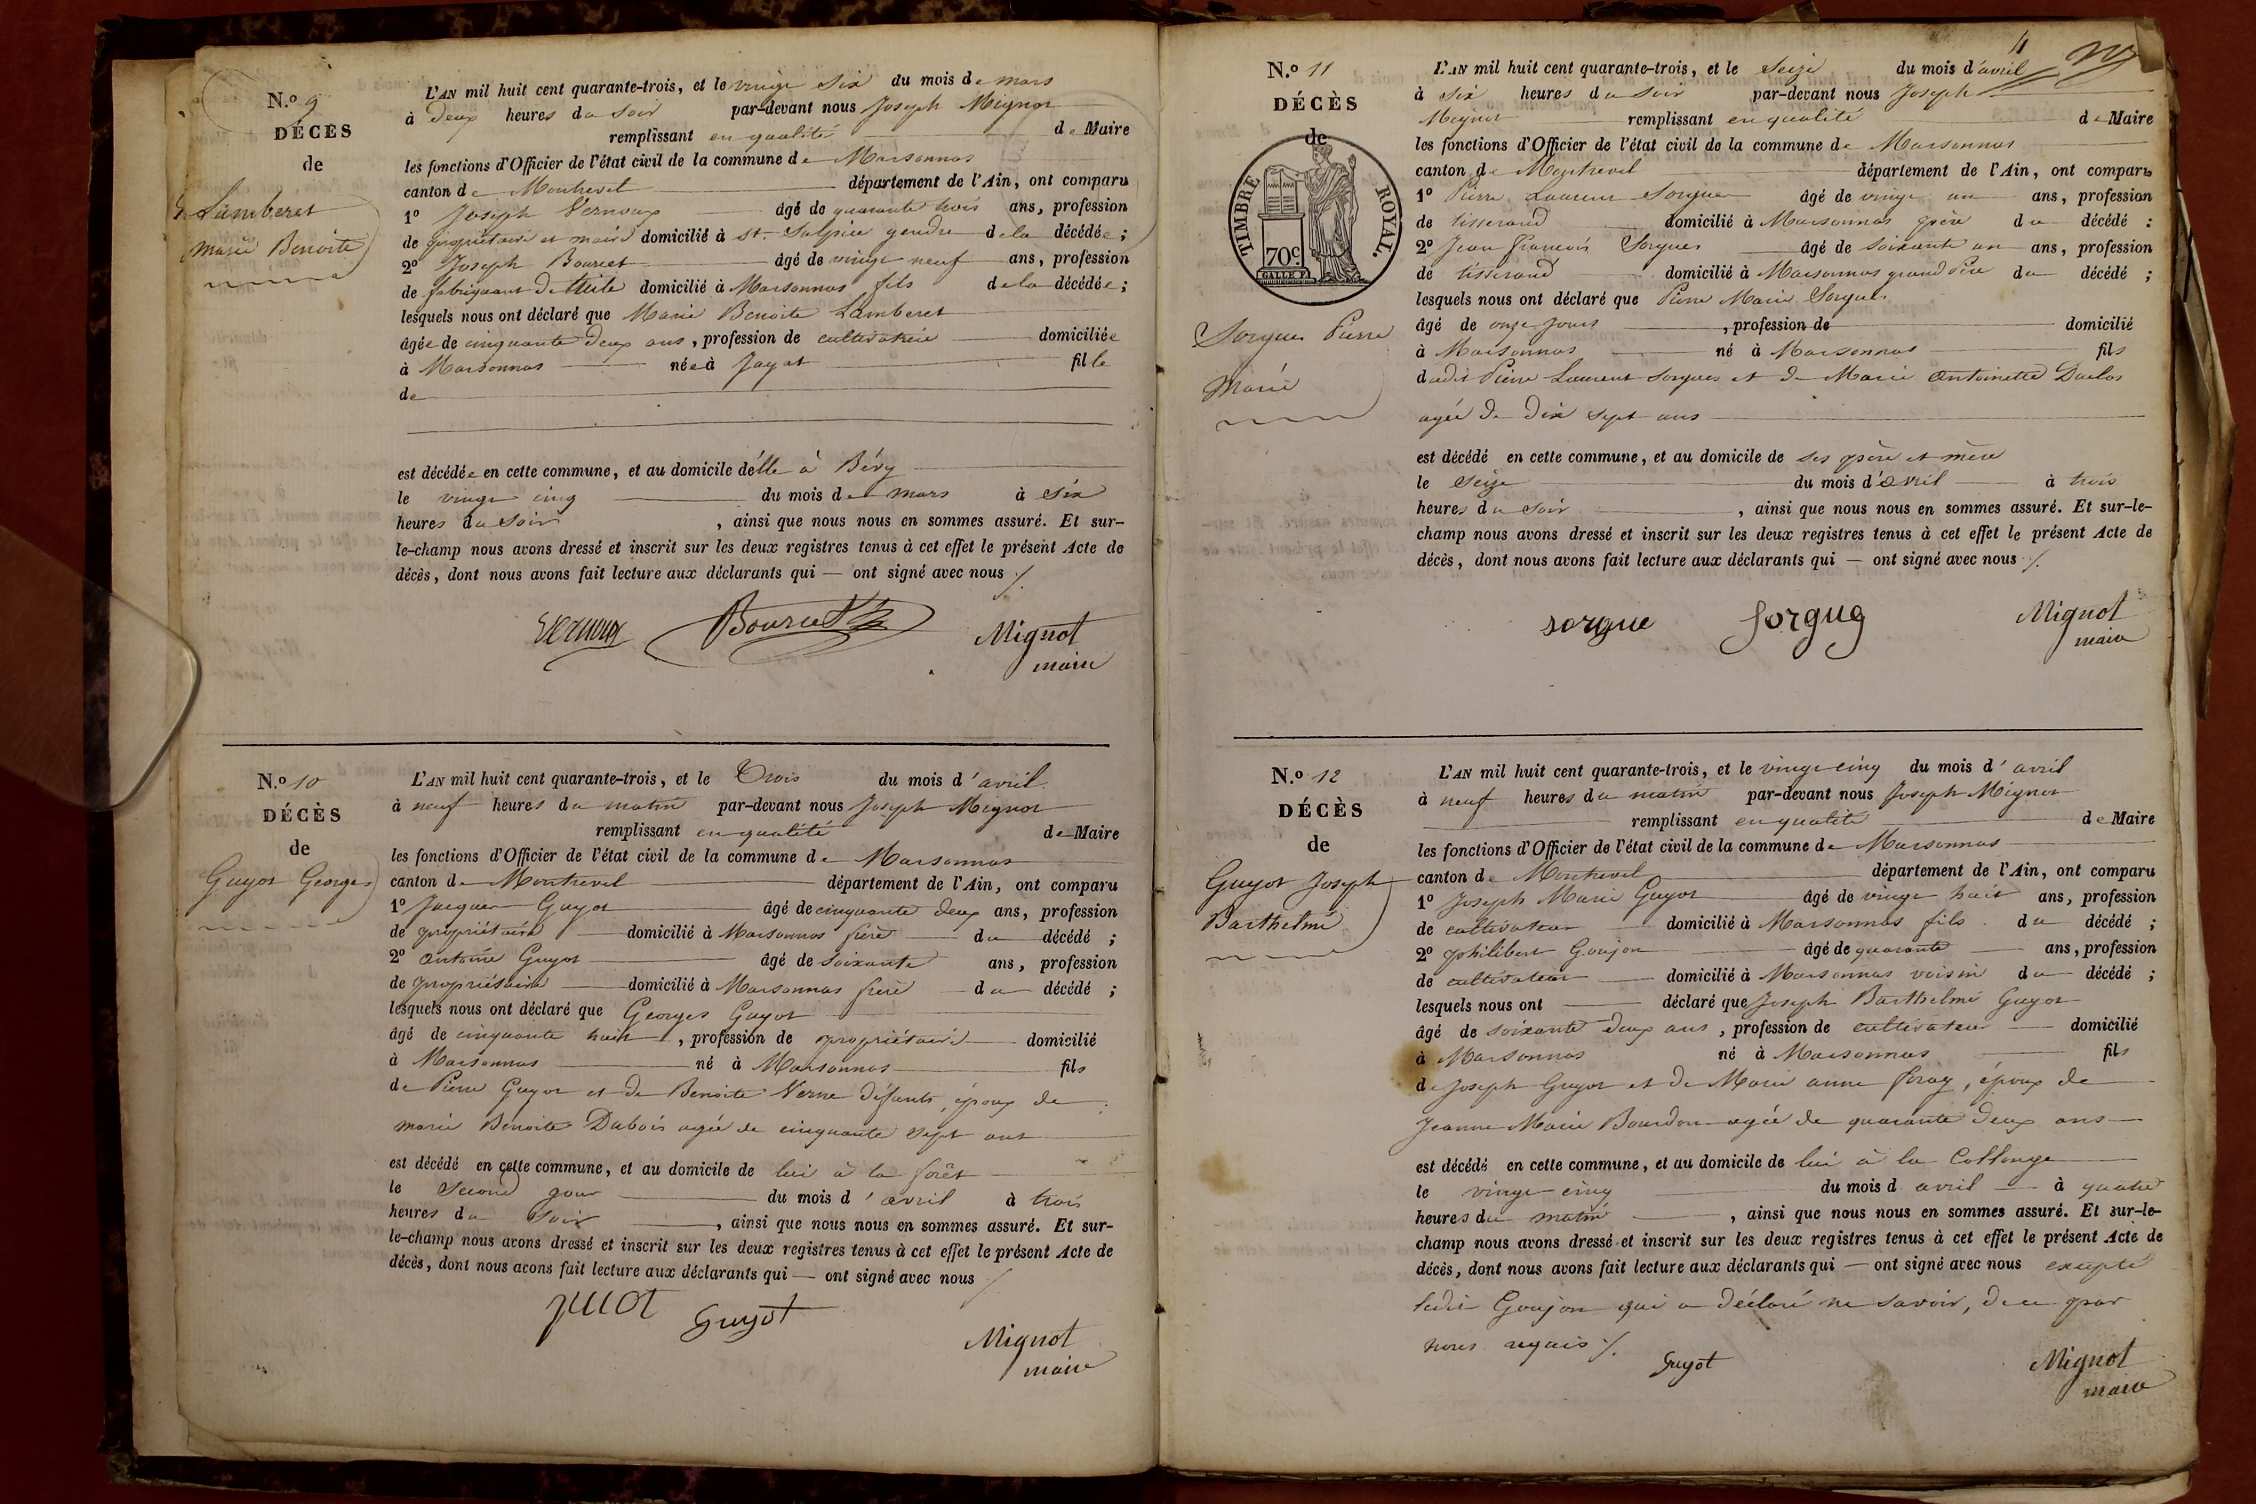 N.º 9
DÉCÈS
de
Lamberet
marie Benoite
L'AN mil huit cent quarante-trois, et le vingt six du mois de mars
à deux heures du soir par-devant nous Joseph Mignot
remplissant en qualité de Maire
les fonctions d'Officier de l'état civil de la commune de Marsonnas
canton de Montrevel département de l'Ain, ont comparu
1º Joseph Vernoux âgé de quarante trois ans, profession
de propriétaire et maire domicilié à St. Sulpice gendre de la décédée ;
2º Joseph Bourcet âgé de vingt neuf ans, profession
de fabriquant de tuile domicilié à Marsonnas fils de la décédée ;
lesquels nous ont déclaré que Marie Benoite Lamberet
âgée de cinquante deux ans, profession de cultivatrice domiciliée
à Marsonnas née à Jayat fille
de
est décédée en cette commune, et au domicile d'elle à Bévy
le vingt cinq du mois de mars à six
heures du soir, ainsi que nous nous en sommes assuré. Et sur-
le-champ nous avons dressé et inscrit sur les deux registres tenus à cet effet le présent Acte de
décès, dont nous avons fait lecture aux déclarants qui — ont signé avec nous ./.
Vernoux Bourcet Mignot
maire
N.º 10
DÉCÈS
de
Guyot Georges
L'AN mil huit cent quarante-trois, et le Trois du mois d'avril
à neuf heures du matin par-devant nous Joseph Mignot
remplissant en qualité de Maire
les fonctions d'Officier de l'état civil de la commune de Marsonnas
canton de Montrevel département de l'Ain, ont comparu
1º Jacques Guyot âgé de cinquante deux ans, profession
de propriétaire domicilié à Marsonnas frère du décédé ;
2º Antoine Guyot âgé de soixante ans, profession
de propriétaire domicilié à Marsonnas frère du décédé ;
lesquels nous ont déclaré que Georges Guyot
âgé de cinquante huit, profession de propriétaire domicilié
à Marsonnas né à Marsonnas fils
de Pierre Guyot et de Benoite Verne défunts, époux de
marie Benoite Dubois agée de cinquante sept ans
est décédé en cette commune, et au domicile de lui à la forêt
le second jour du mois d'avril à trois
heures du soir, ainsi que nous nous en sommes assuré. Et sur-
le-champ nous avons dressé et inscrit sur les deux registres tenus à cet effet le présent Acte de
décès, dont nous avons fait lecture aux déclarants qui — ont signé avec nous ./.
Guyot
Mignot
maire
11
N.º 11
DÉCÈS
de
TIMBRE ROYAL.
70 c.
GALLE F.
Sorgues Pierre
Marie
L'AN mil huit cent quarante-trois, et le seize du mois d'avril
à six heures du soir par-devant nous Joseph
Mignot remplissant en qualité de Maire
les fonctions d'Officier de l'état civil de la commune de Marsonnas
canton de Montrevel département de l'Ain, ont comparu
1º Pierre Laurent Sorgues âgé de vingt un ans, profession
de tisserand domicilié à Marsonnas père du décédé :
2º Jean François Sorgues âgé de soixante un ans, profession
de tisserand domicilié à Marsonnas grand père du décédé ;
lesquels nous ont déclaré que Pierre Marie Sorgues
âgé de onze jours, profession de domicilié
à Marsonnas né à Marsonnas fils
dudit Pierre Laurent Sorgues et de Marie Antoinette Duclos
agée de dix sept ans
est décédé en cette commune, et au domicile de ses père et mère
le seize du mois d'avril à trois
heures du soir, ainsi que nous nous en sommes assuré. Et sur-le-
champ nous avons dressé et inscrit sur les deux registres tenus à cet effet le présent Acte de
décès, dont nous avons fait lecture aux déclarants qui — ont signé avec nous ./.
sorgue Sorgug Mignot
maire
N.º 12
DÉCÈS
de
Guyot Joseph
Barthelmi
L'AN mil huit cent quarante-trois, et le vingt cinq du mois d'avril
à neuf heures du matin par-devant nous Joseph Mignot
remplissant en qualité de Maire
les fonctions d'Officier de l'état civil de la commune de Marsonnas
canton de Montrevel département de l'Ain, ont comparu
1º Joseph Marie Guyot âgé de vingt huit ans, profession
de cultivateur domicilié à Marsonnas fils du décédé ;
2º philibert Goujon âgé de quarante ans, profession
de cultivateur domicilié à Marsonnas voisin du décédé ;
lesquels nous ont déclaré que Joseph Barthelmi Guyot
âgé de soixante deux ans, profession de cultivateur domicilié
à Marsonnas né à Marsonnas fils
de Joseph Guyot et de Marie anne foray, époux de
Jeanne Marie Bourdon agée de quarante deux ans
est décédé en cette commune, et au domicile de lui à la Collonge
le vingt cinq du mois d avril à quatre
heures du matin, ainsi que nous nous en sommes assuré. Et sur-le-
champ nous avons dressé et inscrit sur les deux registres tenus à cet effet le présent Acte de
décès, dont nous avons fait lecture aux déclarants qui — ont signé avec nous excepté
ledit Goujon qui a déclaré ne savoir, de ce par
nous requis ./.
Guyot Mignot
maire